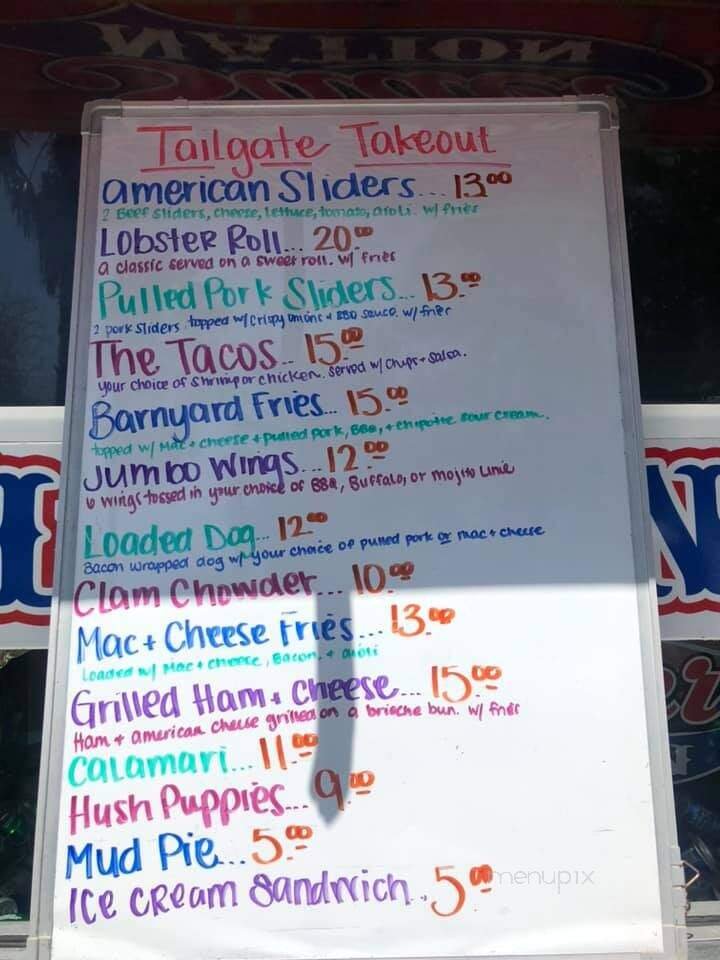 NATION
Tailgate Takeout
american Sliders... 13.00
2 Beef sliders, cheese, lettuce, tomato, aioli. w/ fries
Lobster Roll... 20.00
a classic served on a sweet roll. w/ fries
Pulled Pork Sliders... 13.00
2 pork sliders topped w/ crispy onions + BBQ sauce. w/ fries
The Tacos... 15.00
your choice of shrimp or chicken. served w/ chips + salsa.
Barnyard Fries... 15.00
topped w/ Mac + cheese + pulled pork, BBQ, + chipotle sour cream.
Jumbo Wings... 12.00
6 wings tossed in your choice of BBQ, Buffalo, or mojito lime
Loaded Dog... 12.00
Bacon wrapped dog w/ your choice of pulled pork or mac + cheese
Clam Chowder... 10.00
Mac + Cheese Fries... 13.00
Loaded w/ Mac + cheese, Bacon + aioli
Grilled Ham + Cheese... 15.00
Ham + american cheese grilled on a brioche bun. w/ fries
Calamari... 11.00
Hush Puppies... 9.00
Mud Pie... 5.00
Ice Cream Sandwich.. 5.00
menupix